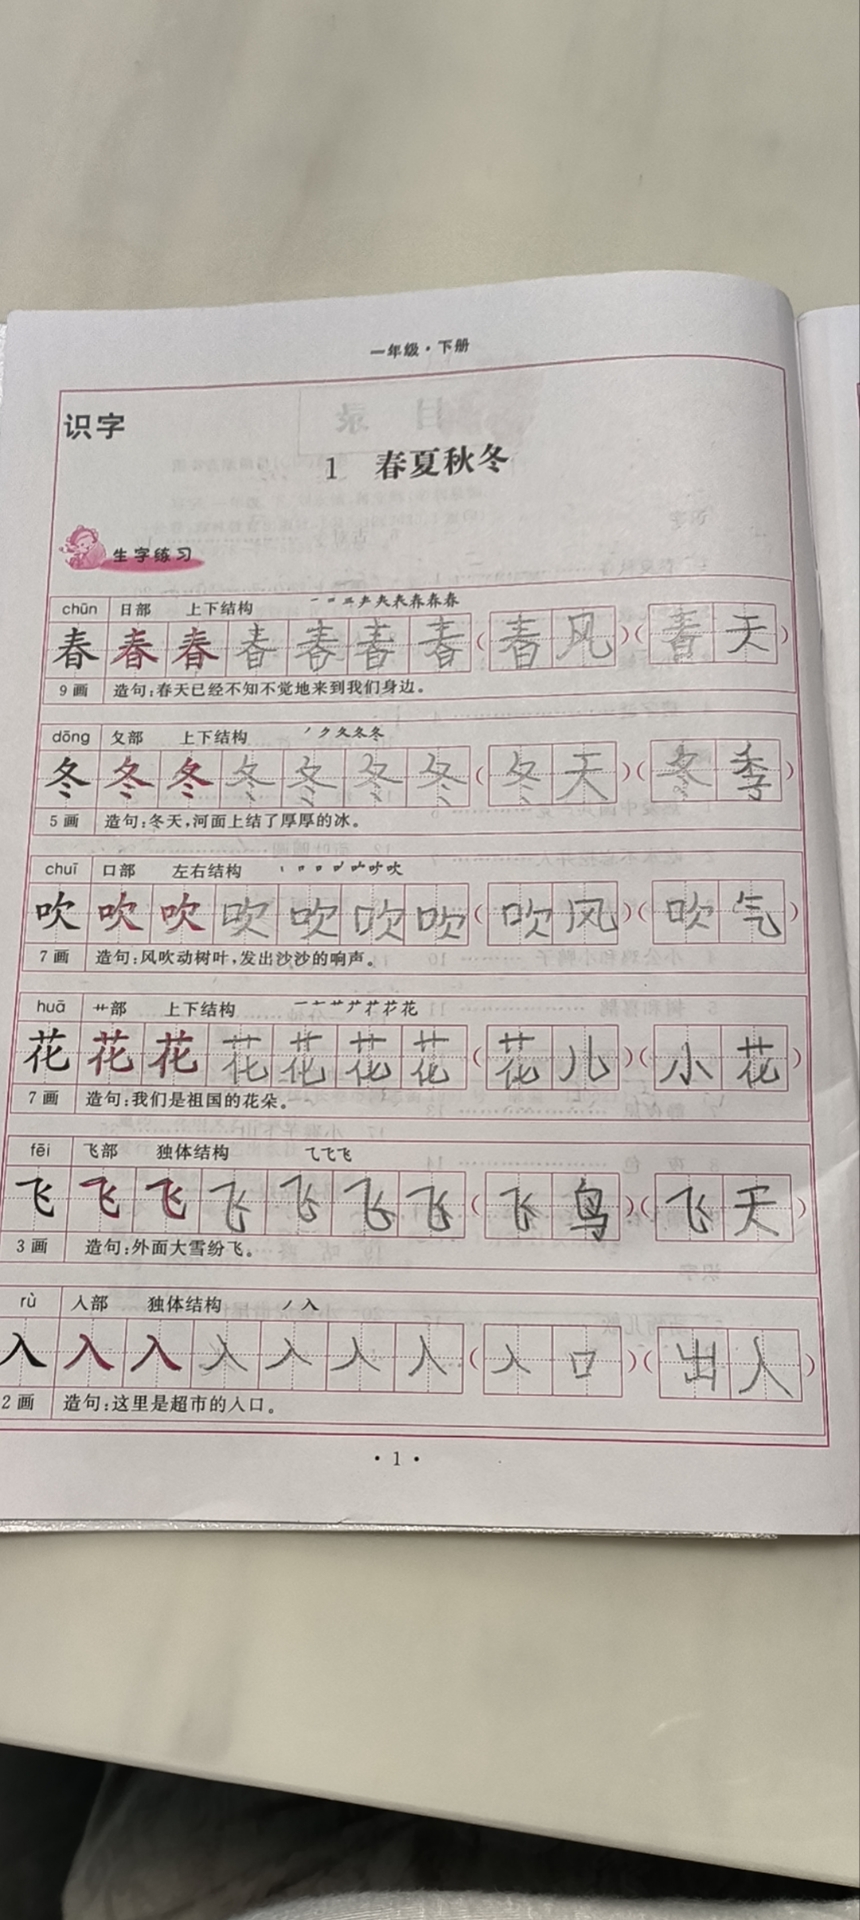 一年级·下册
识字
1 春夏秋冬
生字练习
chūn 日部 上下结构
春 春 春 春 春 春 春 (春风)(春天)
9画 造句:春天已经不知不觉地来到我们身边。
dōng 夂部 上下结构
冬 冬 冬 冬 冬 冬 冬 (冬天)(冬季)
5画 造句:冬天,河面上结了厚厚的冰。
chuī 口部 左右结构
吹 吹 吹 吹 吹 吹 吹 (吹风)(吹气)
7画 造句:风吹动树叶,发出沙沙的响声。
huā 艹部 上下结构
花 花 花 花 花 花 花 (花儿)(小花)
7画 造句:我们是祖国的花朵。
fēi 飞部 独体结构
飞 飞 飞 飞 飞 飞 飞 (飞鸟)(飞天)
3画 造句:外面大雪纷飞。
rù 入部 独体结构
入 入 入 入 入 入 入 (入口)(出人)
2画 造句:这里是超市的入口。
·1·